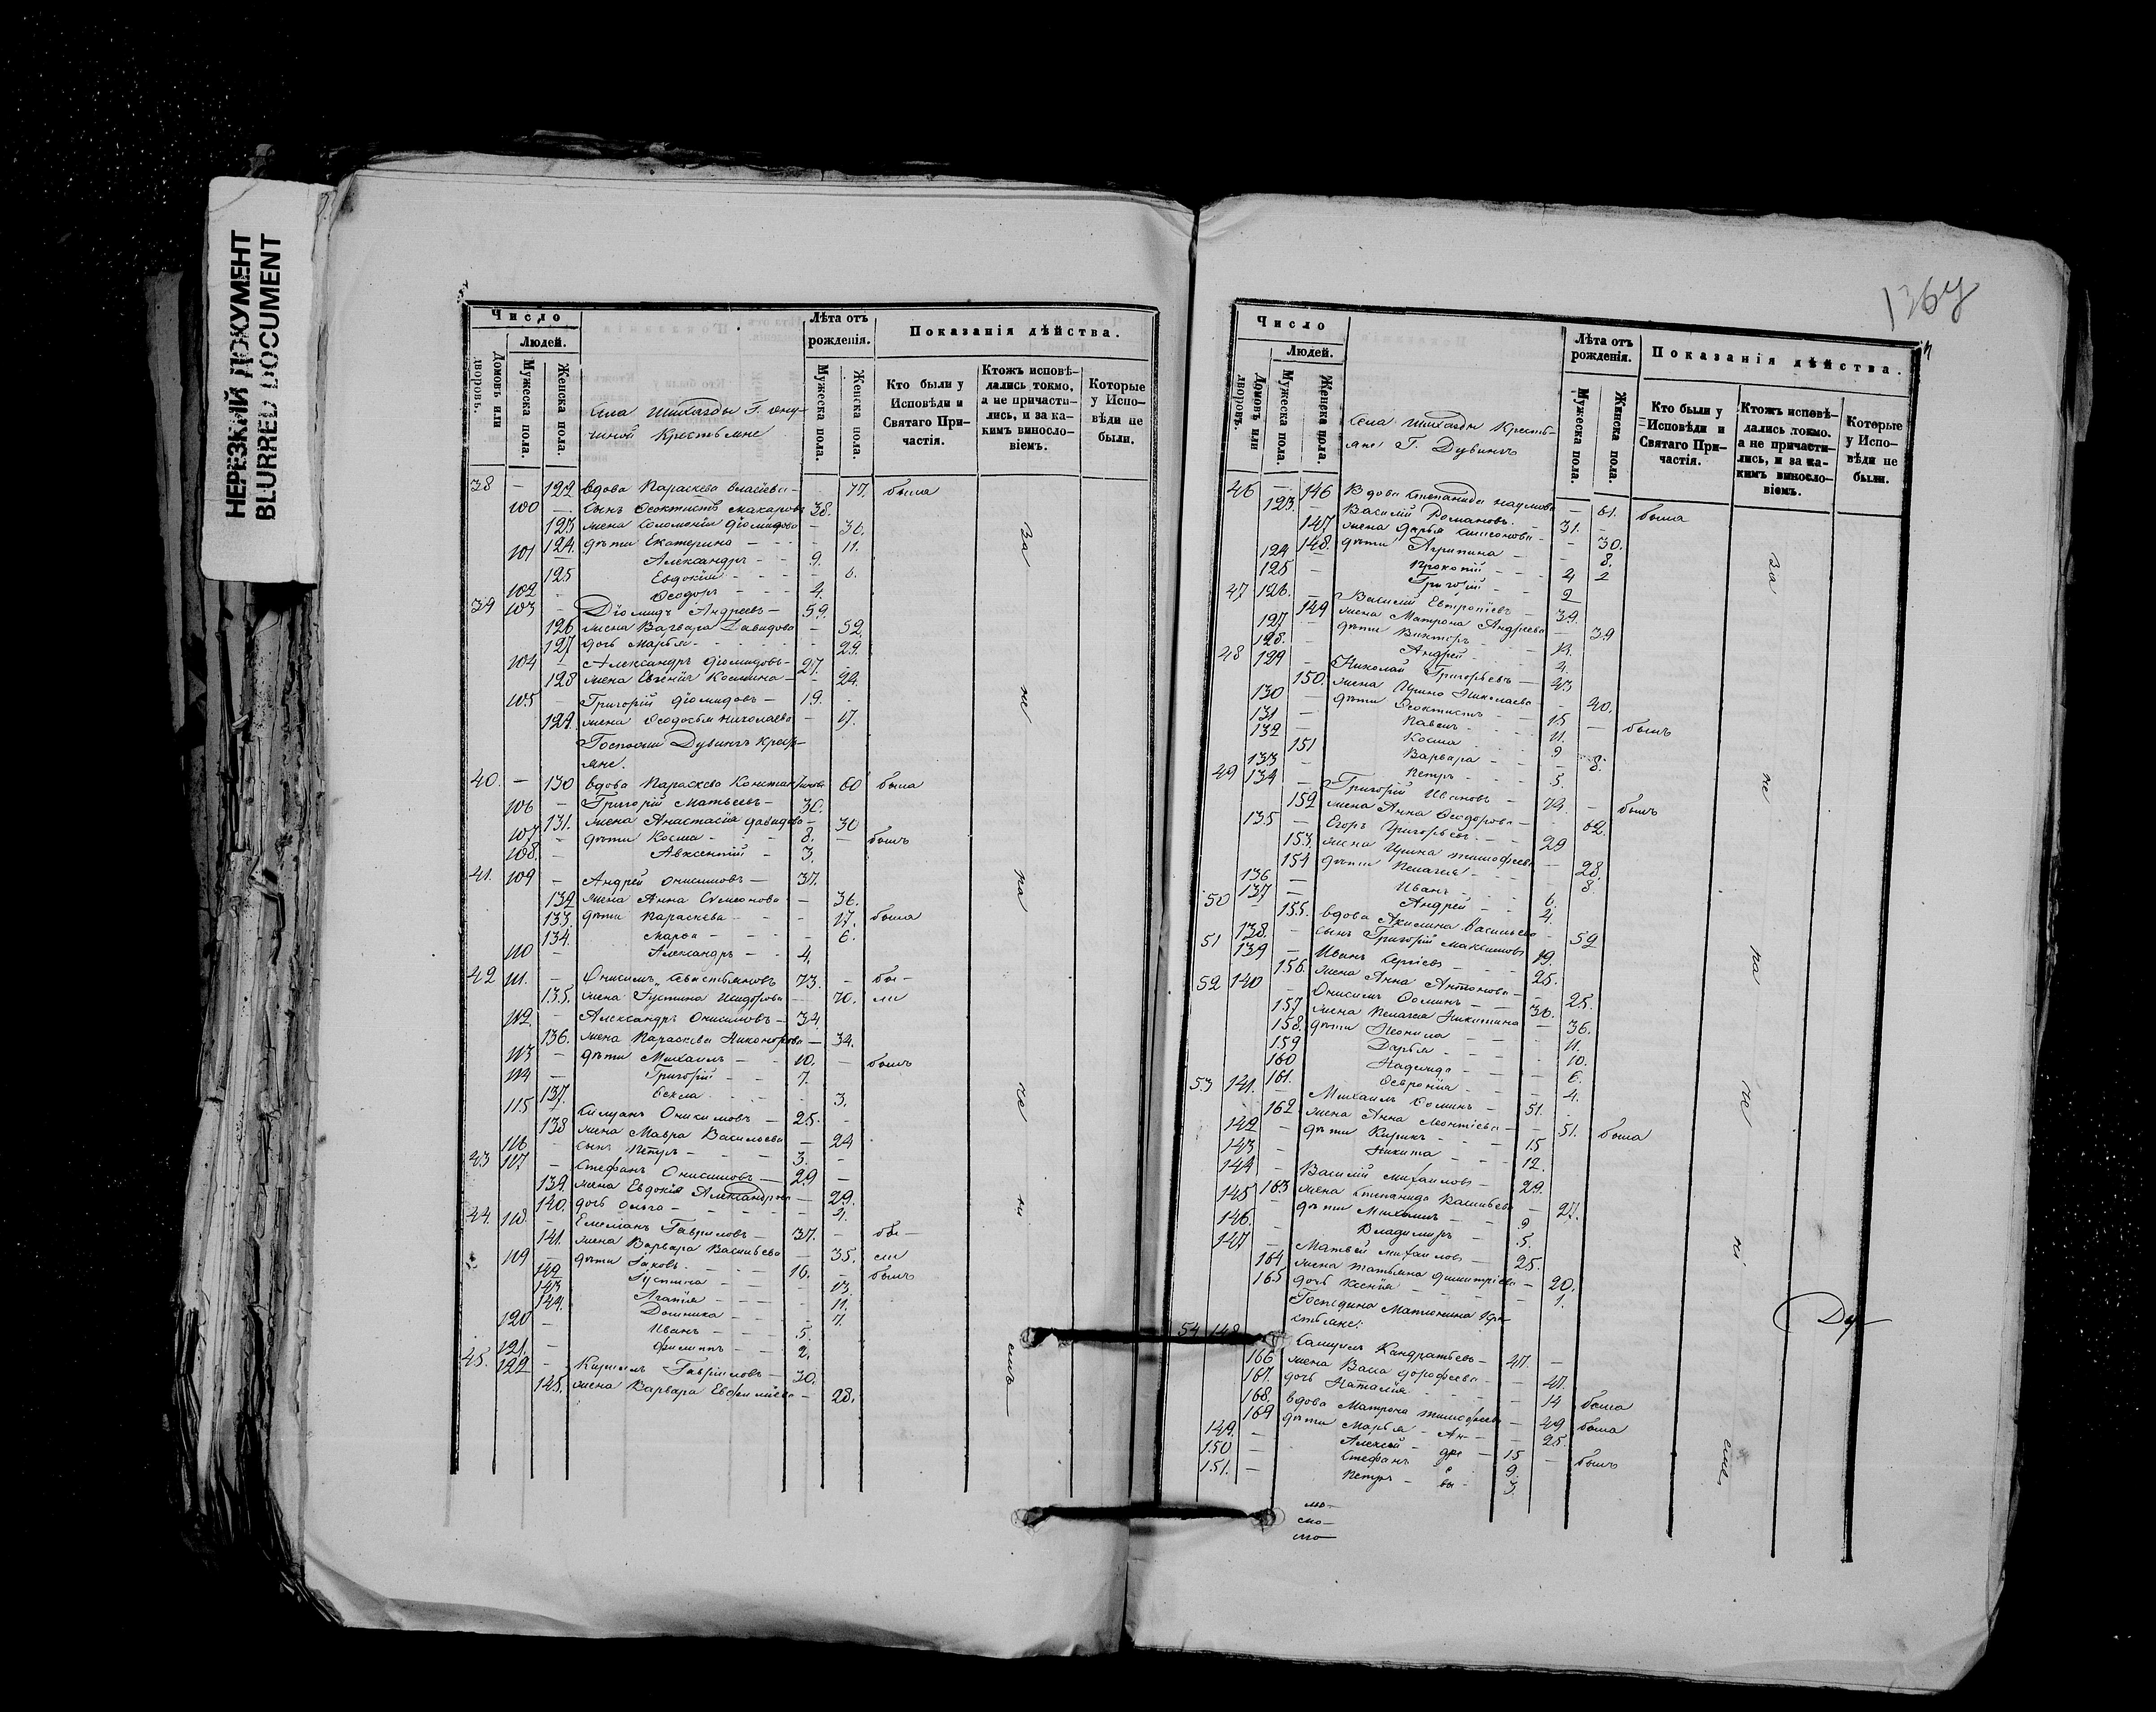 НЕРЕЗКИЙ ДОКУМЕНТ
BLURRED DOCUMENT
Число
Людей.
Домовъ или дворовъ.
Мужеска пола.
Женска пола.
Лѣта отъ рожденія.
Мужеска пола.
Женска пола.
Показанія дѣйства.
Кто были у Исповѣди и Святаго Причастія.
Ктожъ исповѣдались токмо, а не причастились, и за какимъ винословіемъ.
Которые у Исповѣди не были.
Села Шихазды Г.
Крестьяне
38 — 122 вдова Параскева Власіева — 77. была
100 — сынъ Ѳеоктистъ Макаровъ 38.
123 жена Соломонія Діомидова — 36.
124. дѣти Екатерина — 11.
101 — Александръ — 9.
125 Евдокія — 6.
102 — Ѳеодоръ — 4.
39 103 — Діомидъ Андреевъ — 59.
126 жена Варвара Давидова — 52.
127 дочь Марья — 29.
104 — Александръ Діомидовъ — 27.
128 жена Евгенія Космина — 24.
105 — Григорій Діомидовъ — 19.
129. жена Ѳеодосья Николаева — 17.
Господина Дувингъ крестьяне.
40. — 130 вдова Параскева Константинова 60 была
106 — Григорій Матвеевъ — 30.
131. жена Анастасія Давидова — 30
107 — дѣти Косма — 8. — былъ
108. — Авксентій — 3.
41. 109 — Андрей Онисимовъ — 37.
132 жена Анна Симеонова — 36.
133. дѣти Параскева — 17. была
134. Марѳа — 6.
110 — Александръ — 4.
42 111. — Онисимъ Севастьяновъ 73. — бы-
135. жена Іустина Исидорова — 70. ли
112 — Александръ Онисимовъ — 34.
136. жена Параскева Никонорова — 34.
113 — дѣти Михаилъ — 10. — былъ
114 — Григорій — 7.
137. Ѳекла — 3.
115 — Онисимовъ — 25.
138 жена Мавра Васильева — 24
116 — сынъ Петръ — 3.
43 117 — Стефанъ Онисимовъ — 29 —
139. жена Евдокія Александрова — 29.
140. дочь Ольга — 4.
44. 118 — Емеліанъ Гавриловъ — 37. — бы-
141. жена Варвара Васильева — 35. ли
119 — дѣти Іаковъ — 16. — былъ
142 Іустина — 13.
143 Агаѳія — 11.
144. Домника — 7.
120 — Иванъ — 5.
121. — Филиппъ — 2.
45. 122 — Кириллъ Гавриловъ — 30.
145. жена Варвара Евфиміева — 28.
За
не
на
че
ни
емъ
Число
Людей.
Домовъ или дворовъ.
Мужеска пола.
Женска пола.
Лѣта отъ рожденія.
Мужеска пола.
Женска пола.
Показанія дѣйства.
Кто были у Исповѣди и Святаго Причастія.
Ктожъ исповѣдались токмо, а не причастились, и за какимъ винословіемъ.
Которые у Исповѣди не были.
Села Шихазды Кресть-
яне Г. Дувингъ
46 — 146 Вдова Степанида Наумова — 61. была
123. — Василій Романовъ — 31. —
147 жена Дарья Симеонова — 30.
148. дѣти Агрипина — 8.
124 — Прокопій — 4
125 — Григорій — 2
47 126. — Василій Евтропіевъ — 39.
149 жена Матрона Андреева — 39
127 — дѣти Викторъ — 13.
128. — Андрей — 4.
48 129 — Николай Григорьевъ — 43
150. жена Ирина Николаева — 40.
130 — дѣти Ѳеоктистъ — 15 — былъ
131 — Павелъ — 11.
132 — Косма — 9
151 Варвара — 8.
133 — Петръ — 5.
49 134 — Григорій Ивановъ — 74. — былъ
152 жена Анна Ѳеодорова — 62.
135 — Егоръ Григорьевъ — 29
153. жена Ирина Тимофеева — 28.
154 дѣти Пелагея — 8.
136 — Иванъ — 6.
137 — Андрей — 4.
50 — 155. вдова Акилина Васильева — 52
138. — сынъ Григорій Максимовъ 19.
51 139 — Иванъ Сергіевъ — 25.
156. жена Анна Антонова — 25.
52 140 — Онисимъ Ѳоминъ — 36.
157 жена Пелагея Никитина — 36.
158. дѣти Неонила — 11.
159 Дарья — 10.
160 Надежда — 6.
161. Ѳевронія — 4.
53 141. — Михаилъ Ѳоминъ — 51.
162 жена Анна Леонтіева — 51. была
142 — дѣти Кирикъ — 15
143 — Никита — 12.
144 — Василій Михаиловъ — 29.
163 жена Степанида Васильева — 27.
145 — дѣти Михаилъ — 9
146. — Владимиръ — 5.
147 — Матвей Михаиловъ — 25.
164 жена Татьяна Димитріева — 20.
165 дочь Ксенія — 1.
Господина Матюнина кре-
стьяне:
54 148 — Самуилъ Кандратьевъ — 47. —
166 жена Васса Дорофеева — 47.
167. дочь Наталія — 14 была
168. вдова Матрона Тимофеева — 49 была
169 дѣти Марья — Ан- — 25.
149. — Алексей — дре- 15 — былъ
150 — Стефанъ — е- 9.
151. — Петръ — вы- 3.
За
не
на
че
ні
емъ
Ду